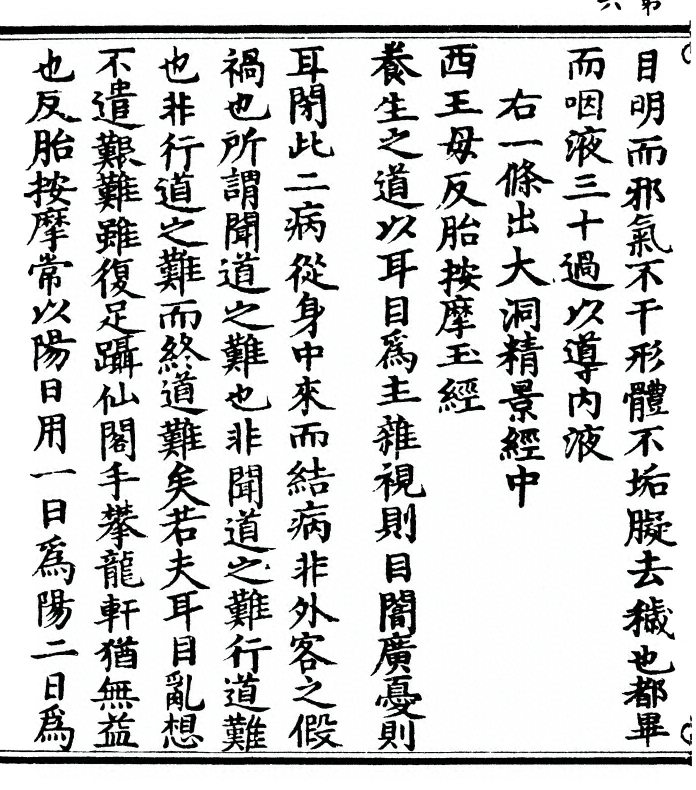 目明而邪氣不干形體不垢膩去穢也都畢
而咽液三十過以導內液
右一條出大洞精景經中
西王母反胎按摩玉經
養生之道以耳目爲主雜視則目闇廣憂則
耳閉此二病從身中來而結病非外客之假
禍也所謂聞道之難也非聞道之難行道難
也非行道之難而終道難矣若夫耳目亂想
不遣艱難雖復足躡仙閣手攀龍軒猶無益
也反胎按摩常以陽日用一日爲陽二日爲